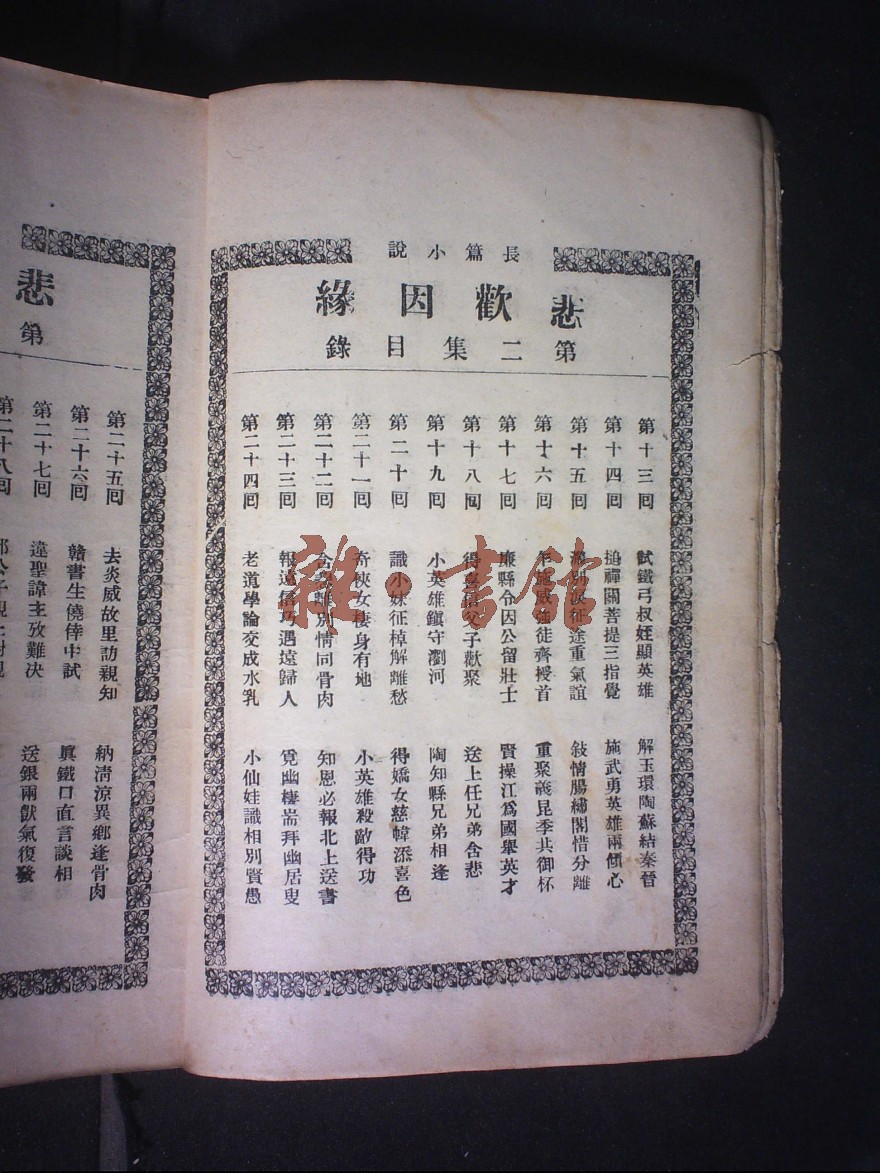 長篇小說
悲歡因緣
第二集目錄
第十三回 試鐵弓叔姪顯英雄 解玉環陶蘇結秦晉
第十四回 搗禪關菩提三指覺 施武勇英雄兩傾心
第十五回 別淚征途重氣誼 敍情腸繡閣惜分離
第十六回 施威強徒齊授首 重聚義昆季共御杯
第十七回 廉縣令因公留壯士 賢操江爲國舉英才
第十八回 得喜信父子歡聚 送上任兄弟含悲
第十九回 小英雄鎮守瀏河 陶知縣兄弟相逢
第二十回 識小妹征棹解離愁 得嬌女慈幃添喜色
第二十一回 奇俠女棲身有地 小英雄殺敵得功
第二十二回 離別情同骨肉 知恩必報北上送書
第二十三回 報遠信巧遇遠歸人 覓幽棲耑拜幽居叟
第二十四回 老道學論交成水乳 小仙娃識相別賢愚
悲
第
第二十五回 去炎威故里訪親知 納淸涼異鄉逢骨肉
第二十六回 贛書生僥倖中試 眞鐵口直言談相
第二十七回 違聖諱主攷難決 送銀兩獃氣復發
第二十八回
雜·書館